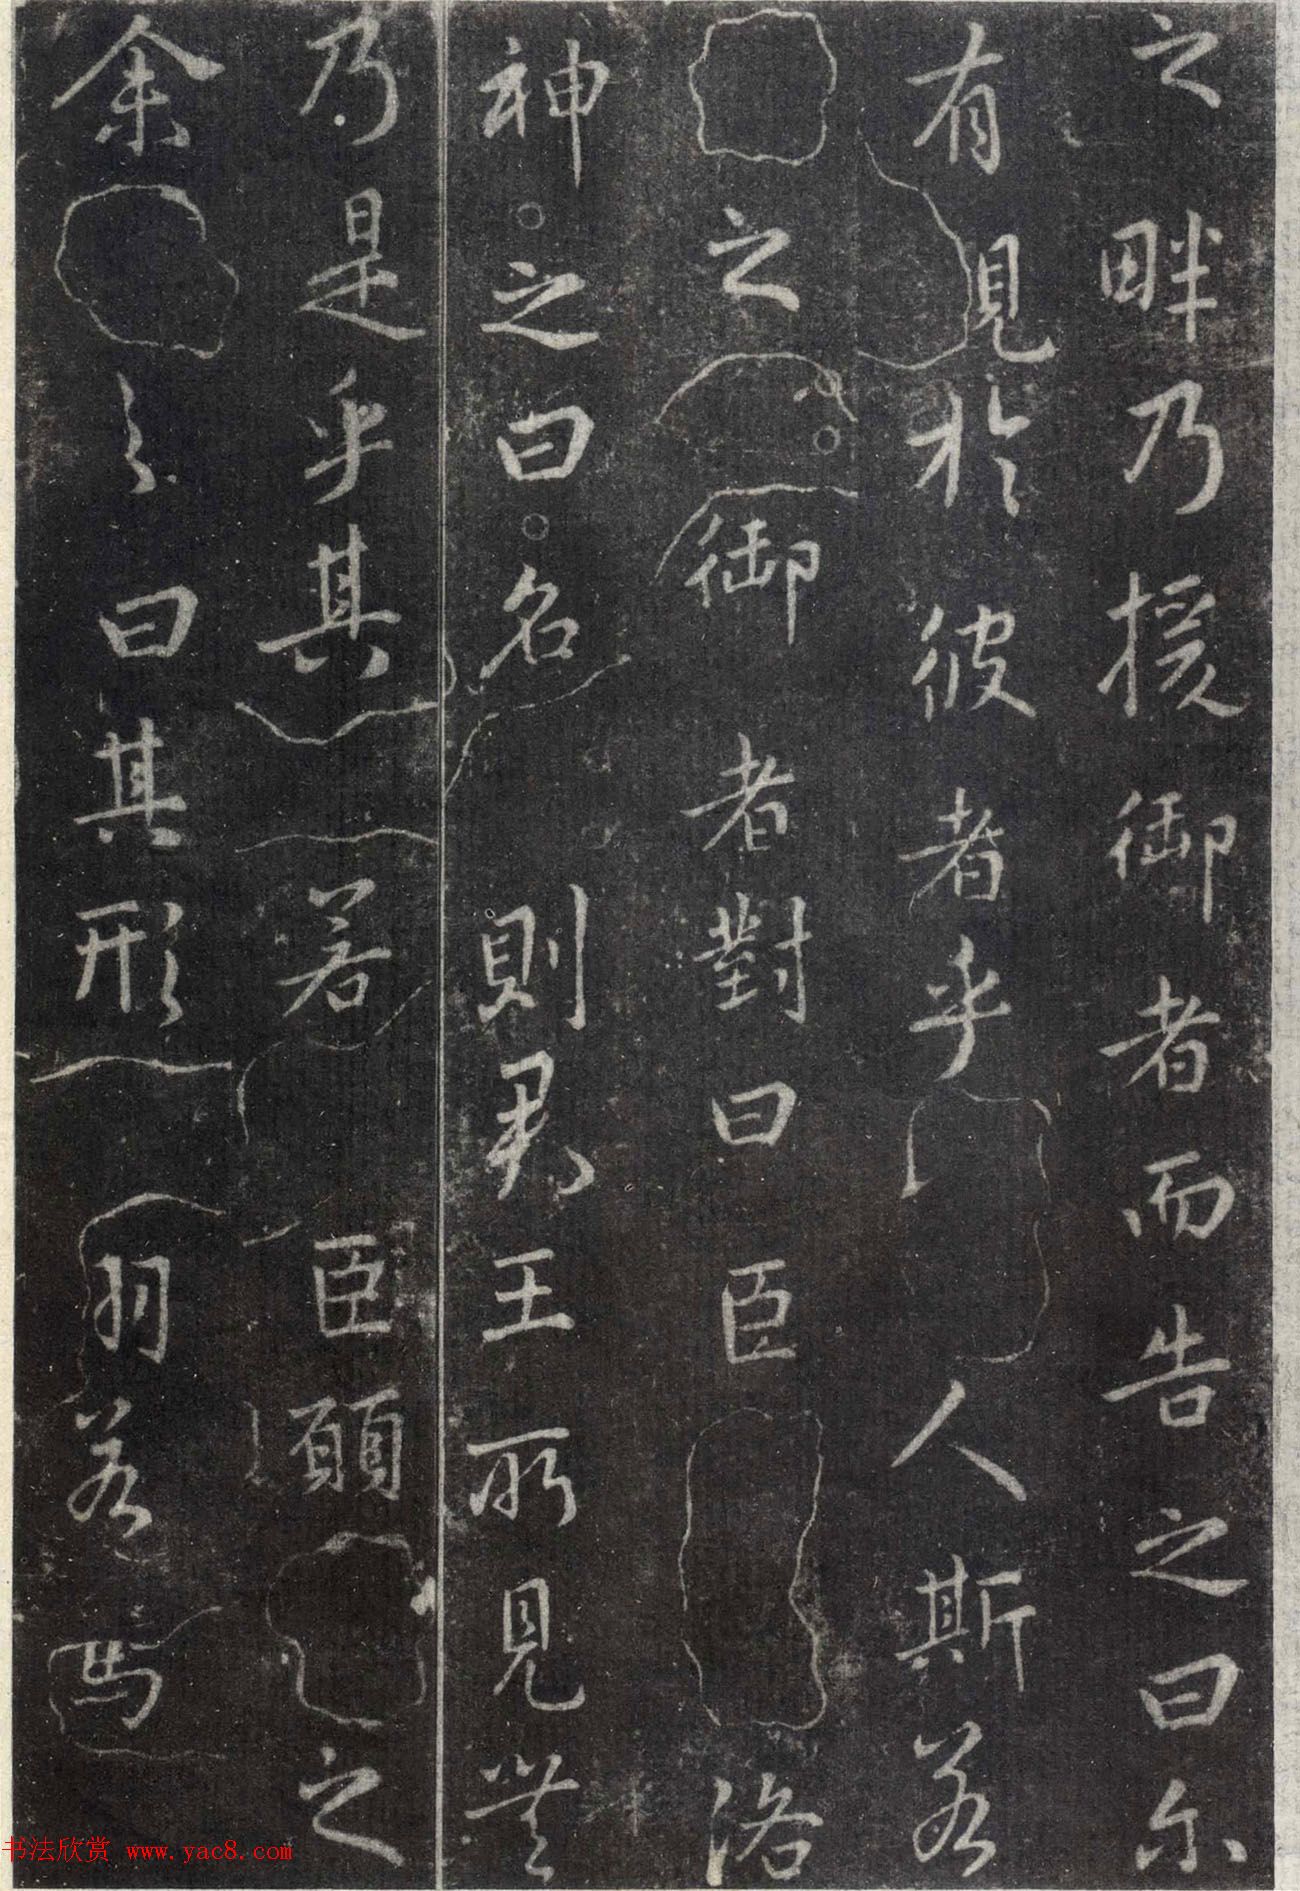 之畔乃援御者而告之曰尔
有見於彼者乎人斯若
之御者對曰臣洛
神之曰名則君王所見無
乃是乎其若臣願之
余之曰其形羽若
书法欣赏 www.yac8.com